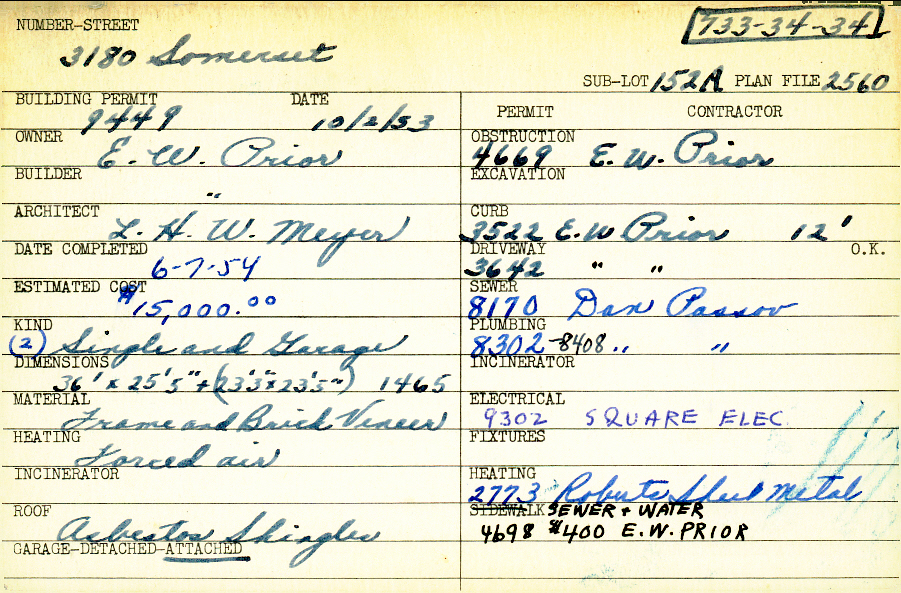 NUMBER-STREET
733-34-34
3180 Somerset
SUB-LOT 152A PLAN FILE 2560
BUILDING PERMIT DATE
9449 10/2/53
OWNER
E. W. Prior
BUILDER
"
ARCHITECT
L. H. W. Meyer
DATE COMPLETED
6-7-54
ESTIMATED COST
$15,000.00
KIND
(2) Single and Garage
DIMENSIONS
36' x 25'5" + (23'3" x 23'5") 1465
MATERIAL
Frame and Brick Veneer
HEATING
Forced air
INCINERATOR
ROOF
Asbestos Shingles
GARAGE-DETACHED-ATTACHED
PERMIT CONTRACTOR
OBSTRUCTION
4669 E. W. Prior
EXCAVATION
CURB
3522 E. W Prior 12'
DRIVEWAY O.K.
3642 " "
SEWER
8170 Dan Passov
PLUMBING
8302-8408 " "
INCINERATOR
ELECTRICAL
9302 SQUARE ELEC
FIXTURES
HEATING
2773 Roberts Sheet Metal
SIDEWALK SEWER + WATER
4698 $400 E.W. PRIOR